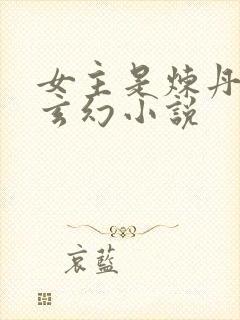 女主是炼丹
玄幻小说
哀蓝